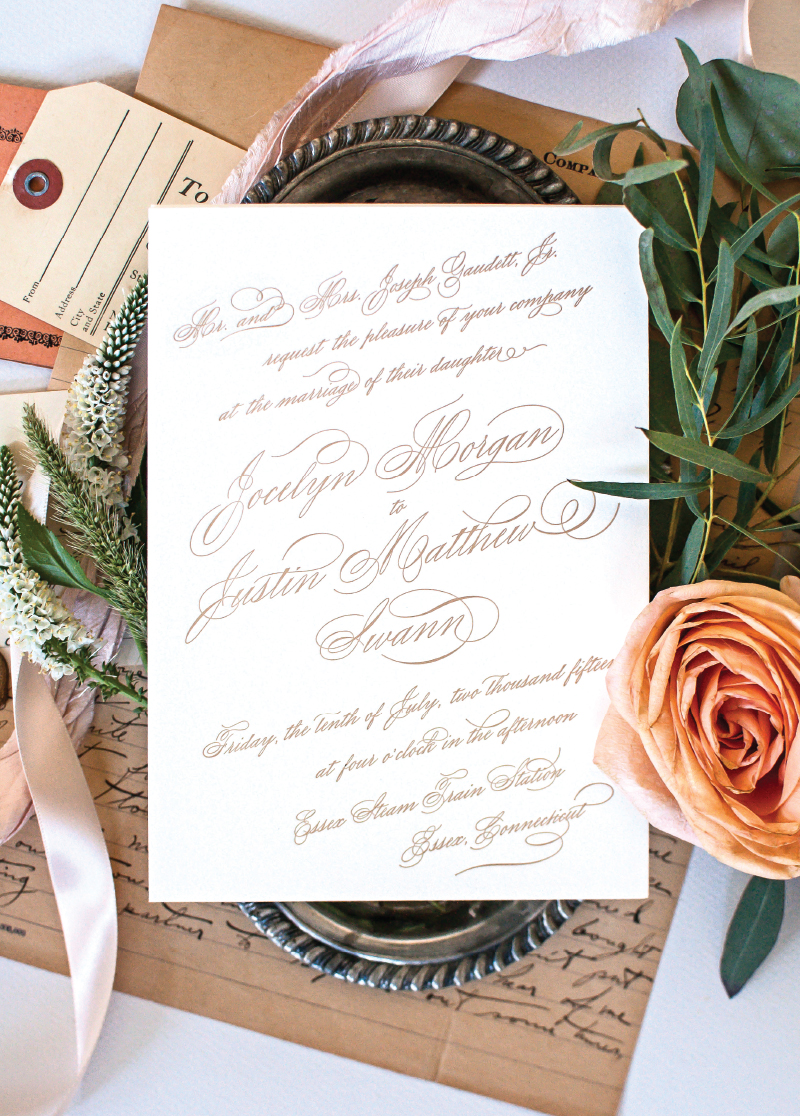 To
From
Address
City
and State
COMPA
Mr. and Mrs. Joseph Gaudett, Jr.
request the pleasure of your company
at the marriage of their daughter
Jocelyn Morgan
to
Justin Matthew
Swann
Friday, the tenth of July, two thousand fifteen
at four o'clock in the afternoon
Essex Steam Train Station
Essex, Connecticut
partner
bought
put
hear of me
out some time,